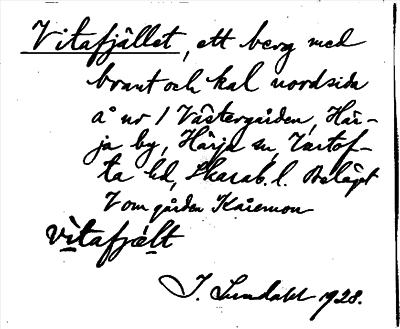 Vitafjället, ett berg med
brant och kal nordsida
å nr 1 Västergården, Här-
ja by, Härja sn, Vartof-
ta hd, Skarab. l. Beläget
V om gården
vitafjält
J. Lundahl 1928.